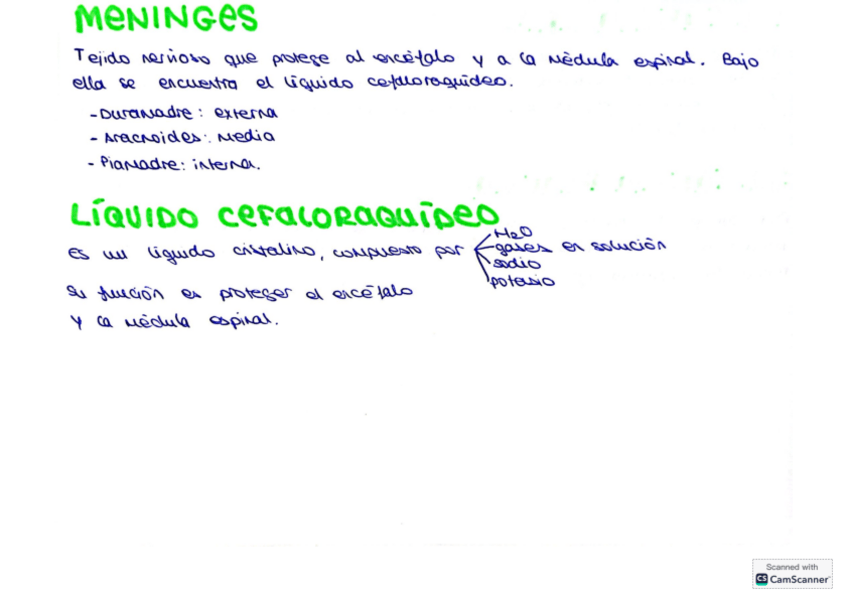 MENINGES
Tejido nervioso que protege al encéfalo y a la médula espinal. Bajo
ella se encuentra el líquido cefaloraquídeo.
- Duramadre: externa
- Aracnoides: Media
- Piamadre: interna.
LÍQUIDO CEFALORAQUÍDEO
Es un líquido cristalino, compuesto por
H2O
gases en solución
sodio
potasio
Su función es proteger el encéfalo
y la médula espinal.
Scanned with
CS CamScanner